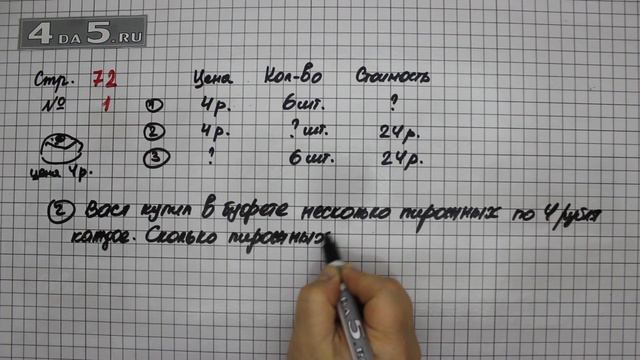 4 DA 5.RU
Стр. 72 Цена Кол-во Стоимость
№ 1 1 4 р. 6 шт. ?
2 4 р. ? шт. 24 р.
3 ? 6 шт. 24 р.
цена 4 р.
2 Вася купил в буфете несколько пирожных по 4 рубля
каждое. Сколько пирожных
4 DA 5.RU